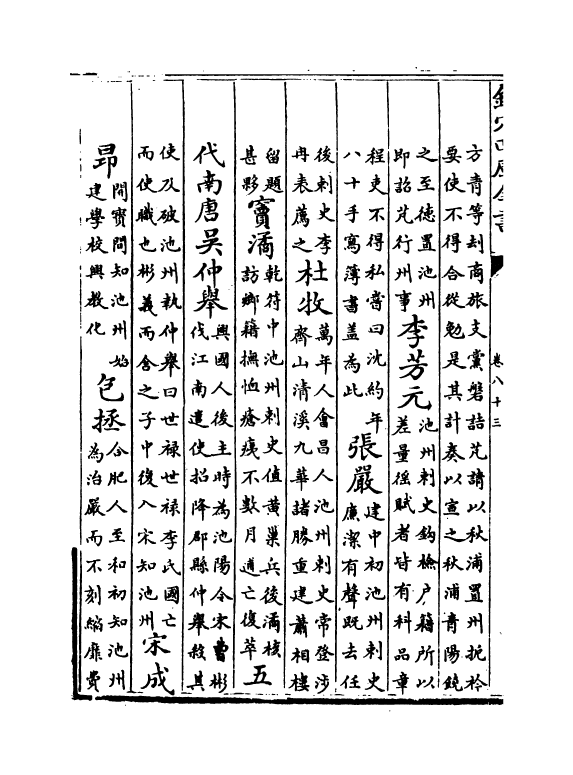 欽定四庫全書
卷八十三
方青等刦商旅支黨磐詰芃請以秋浦置州扼衿
要使不得合從勉是其計奏以宣之秋浦青陽饒
之至德置池州
即詔芃行州事
李芳元
池州刺史鈎檢户籍所以
差量徭賦者皆有科品章
程吏不得私嘗曰沈約年
八十手寫簿書盖為此
張嚴
建中初池州刺史
廉潔有聲既去任
後刺史李
冉表薦之
杜牧
萬年人會昌人池州刺史常登涉
齊山清溪九華諸勝重建蕭相樓
留題
甚夥
竇潏
乾符中池州刺史值黃巢兵後潏核
訪鄉籍撫恤瘡痍不數月逋亡復萃
五
代南唐吳仲舉
興國人後主時為池陽令宋曹彬
伐江南遣使招降郡縣仲舉殺其
使及破池州執仲舉曰世禄世禄李氏國亡
而使職也彬義而舍之子中復入宋知池州
宋成
昂
開寶間知池州始
建學校興教化
包拯
合肥人至和初知池州
為治嚴而不刻縮靡費